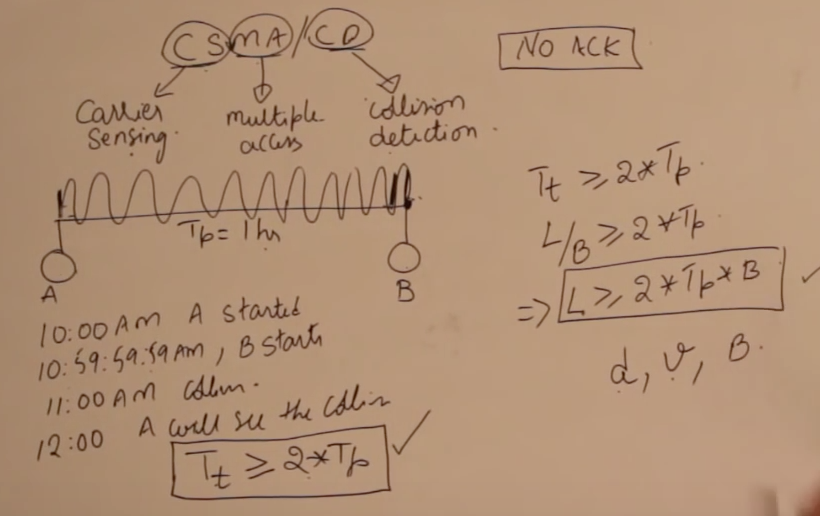 CSMA/CD
NO ACK
Carrier Sensing.
multiple access
collision detection.
Tp = 1 hr
A
B
10:00 AM A Started
10:59:59:59 AM, B Starts
11:00 AM Collsn.
12:00 A will see the Collsn
Tt ≥ 2*Tp
Tt ≥ 2*Tp.
L/B ≥ 2*Tp
=> L ≥ 2*Tp*B
d, v, B.